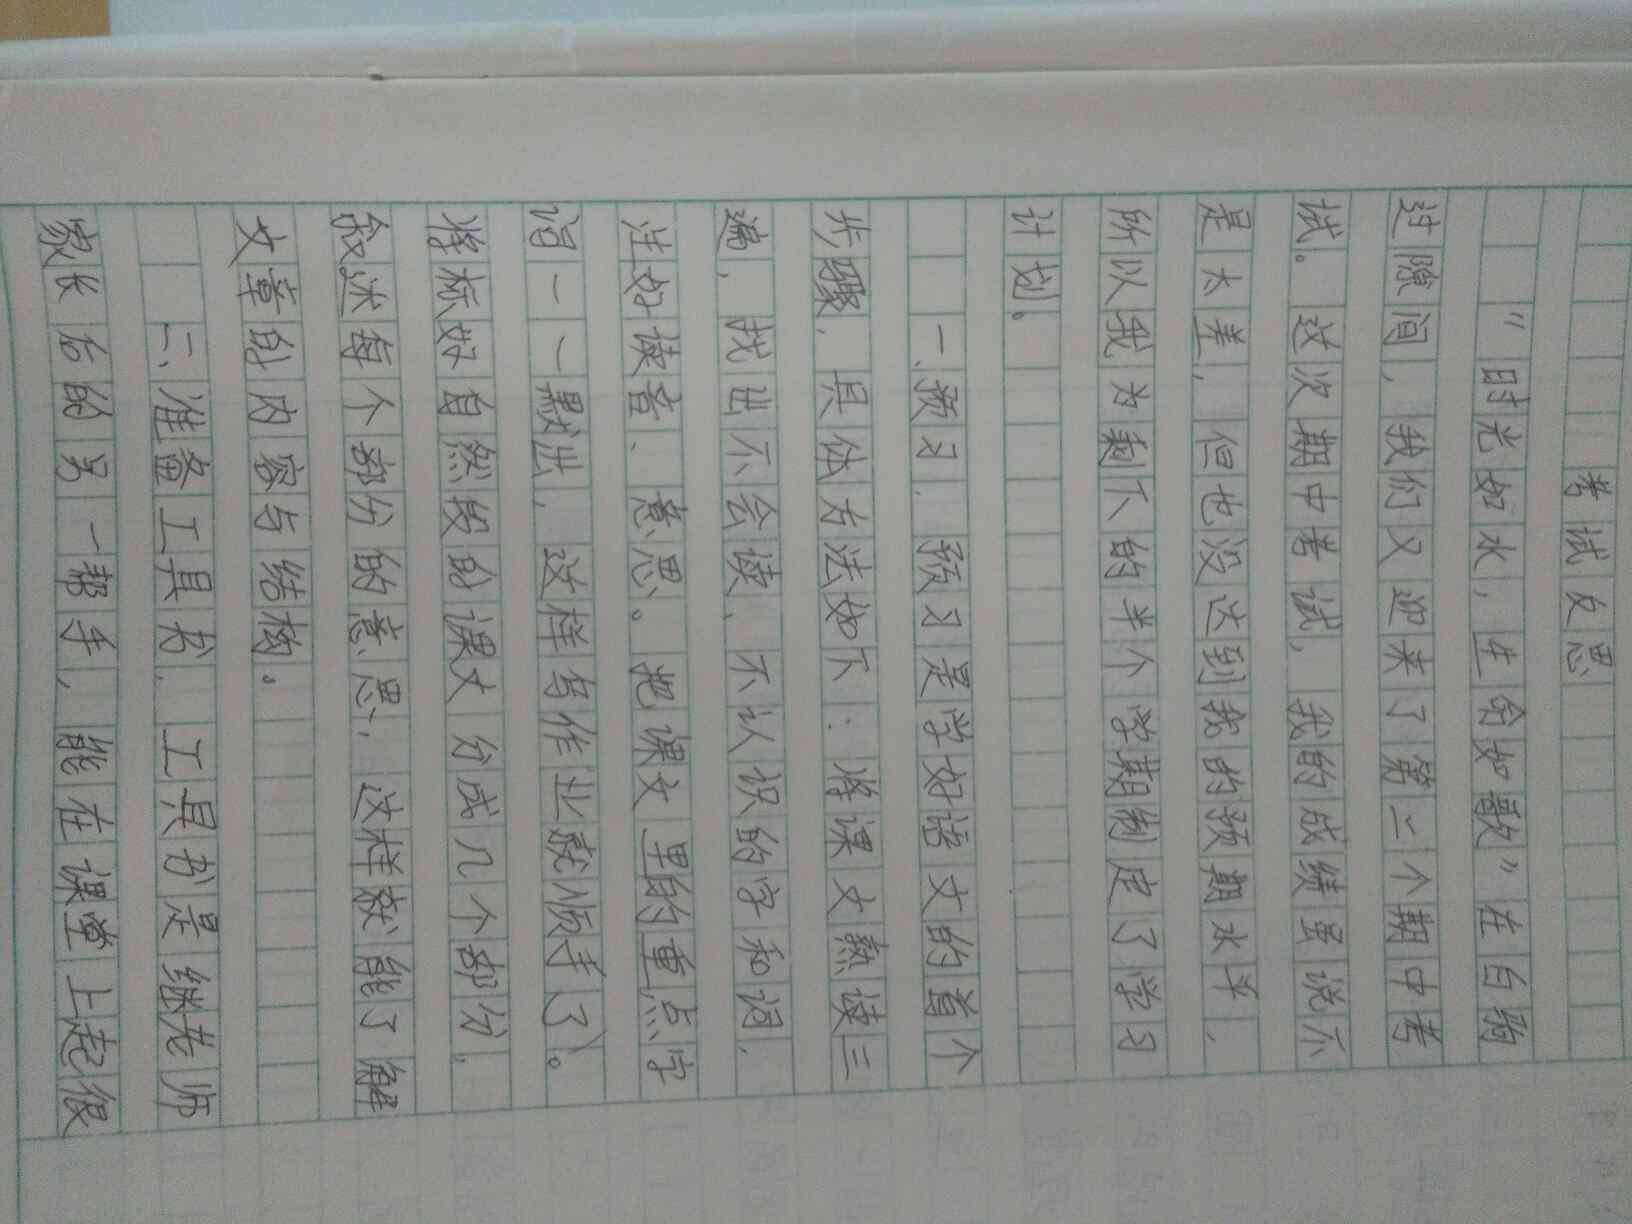 考试反思
“时光如水，生命如歌”在白驹
过隙间，我们又迎来了第二个期中考
试。这次期中考试，我的成绩虽说不
是太差，但也没达到我的预期水平，
所以我为剩下的半个学期制定了学习
计划。
一、预习，预习是学好语文的首个
步骤，具体方法如下：将课文熟读三
遍，找出不会读、不认识的字和词，
注好读音、意思。把课文里的重点字
词一一默洪，这样写作业就顺手了。
将标好自然段的课文分成几个部分，
叙述每个部分的意思，这样就能了解
文章的内容与结构。
二、准备工具书，工具书是继老师
家长后的另一帮手，能在课堂上起很